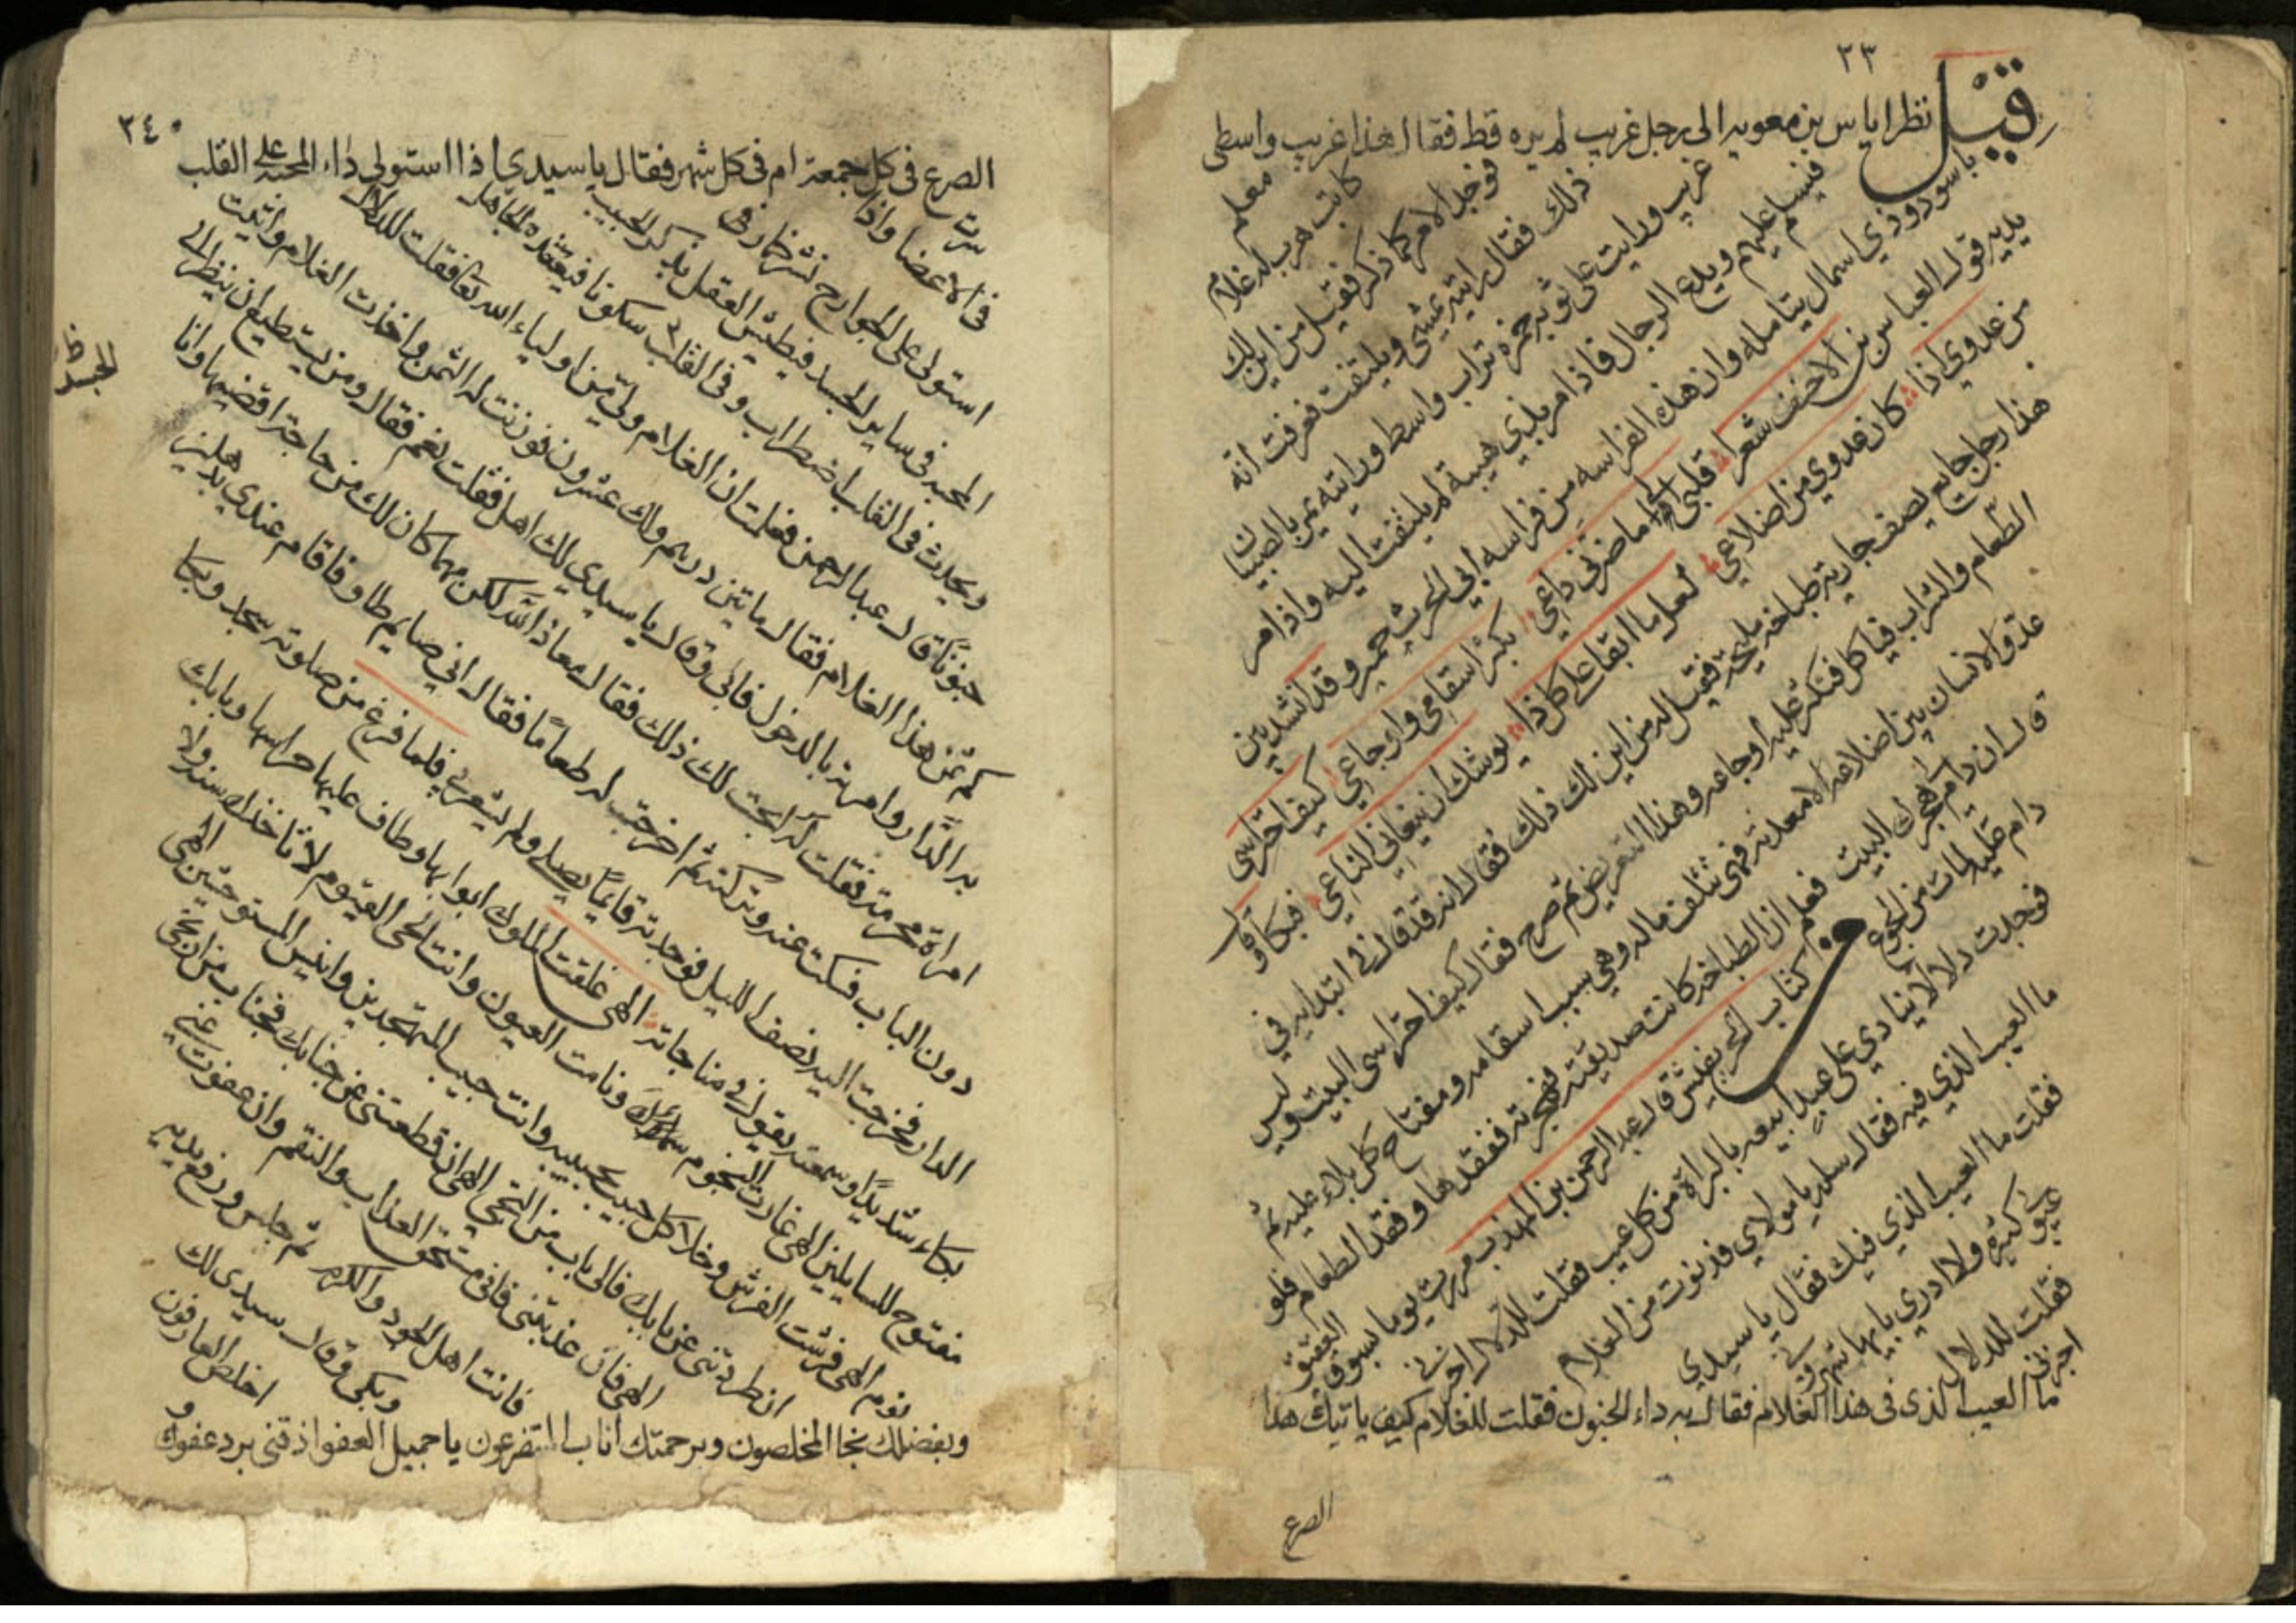 ٢٣
قيل نظر اياس بن معويه الى رجل غريب لم يره قط فقال هذا غريب واسطى
معلم
كاتب هرب له غلام
فوجد الامر كما ذكر فقيل من اين لك
ذلك فقال رايته يمشى ويلتفت فعرفت انه
غريب ورايت على ثوبه حمرة تراب واسط ورايته يمر بالصبيان
فيسلم عليهم ويدع الرجال فاذا مر بذي هيبة لم يلتفت اليه واذا مر
باسود وذي اسمال يتامله وان هذه الفراسه من فراسه ابي الحرث حمير وقد انشد بين
يديه قول العباس بن الاحنف شعرا قلبي الى ما ضرني داعي يكثر اسقامي واوجاعي كيف احتراسى
من عدوي اذا كان عدوي من اضلاعي لعل ما ابقا على كل ذا يوشك ان ينعاني الناعي فبكا وقال
هذا رجل جايع يصف جارية طباخة مليحة فقيل له من اين لك ذلك فقال لانه قد قال في ابتدايه في
الطعام والشراب فياكل فتكثر عليه اوجاعه وهذا التعريض ثم صرح فقال كيف احتراسى البيت وليس
عدو الانسان بين اضلاعه الا معدته فهى تتلف ماله وهي سبب اسقامه ومفتاح كل بلاء عليه ثم
قال ان دام لي هجرك البيت فعلم ان الطباخه كانت صديقته فهجرته ففقدها وفقد الطعام فلو
دام عليه لمات من الجوع
كتاب التحر يفليش قال عبد الرحمن بن المهذب مررت يوما بسوق العتيق
فوجدت دلالا ينادي على عبد ابيعه بالبراة من كل عيب فقلت للدلال اخبرني
ما العيب الذي فيه فقال سله يا مولاي فدنوت من الغلام
فقلت ما العيب الذي فيك فقال يا سيدي
عيوبي كثيرة ولا ادري بايها شهروني
فقلت للدلال اخبرني
ما العيب الذى فى هذا الغلام فقال به داء الجنون فقلت للغلام كيف ياتيك هذا
الصرع
٢٤
الصرع فى كل جمعة ام فى كل شهر فقال يا سيدي اذا استولى داء المحبة على القلب
سرت
فى الاعضا واذا
استولى على الجوارح نشر خماره فى
المحبه فى ساير الجسد فيطيش العقل بذكر الحبيب
ويحدث فى القلب اضطراب وفى القلب سكونا فيعتقده الجاهل
جنونا قال عبد الرحمن فعلمت ان الغلام ولي من اولياء الله تعا فقلت للدلال
كم ثمن هذا الغلام فقال ماتين درهم ولك عشرون فوزنت له الثمن واخذت الغلام واتيت
به الدار وامرته بالدخول فابى وقال يا سيدي لك اهل فقلت نعم فقال ومن يستطيع ان ينظر الى
امراة محرمة فقلت له ابحت لك ذلك فقال معاذ الله لكن مهما كان لك من حاجة اقضيها وانا
دون الباب فسكت عنه وتركته ثم اخرجت له طعاما فقال اني صايم طاو فاقام عندي بدهليز
الدار فخرجت اليه نصف الليل فوجدته قايما يصلى ولم يشعر بى فلما فرغ من صلوته سجد وبكا
بكاء شديدا وسمعته يقول في مناجاته الهى غلقت الملوك ابوابها وطاف عليها حراسها وبابك
مفتوح للسايلين الهى غارت النجوم ونامت العيون وانت الحى القيوم لا تاخذك سنة ولا
نوم الهى فرشت الفرش وخلا كل حبيب بحبيبه وانت حبيب المتهجدين وانيس المستوحشين الهى
ان طردتنى عن بابك فالى باب من التجي الهى ان قطعتنى عن جنابك فبجناب من ارتجى
الهى فان عذبتنى فانى مستحق العذاب والنقم وان عفوت عني
فانت اهل الجود والكرم ثم جلس ورفع يديه
وبكى وقال سيدى لك
اخلص العارفون
و
وبفضلك نجا المخلصون وبرحمتك اناب المتضرعون يا جميل العفو اذقنى برد عفوك